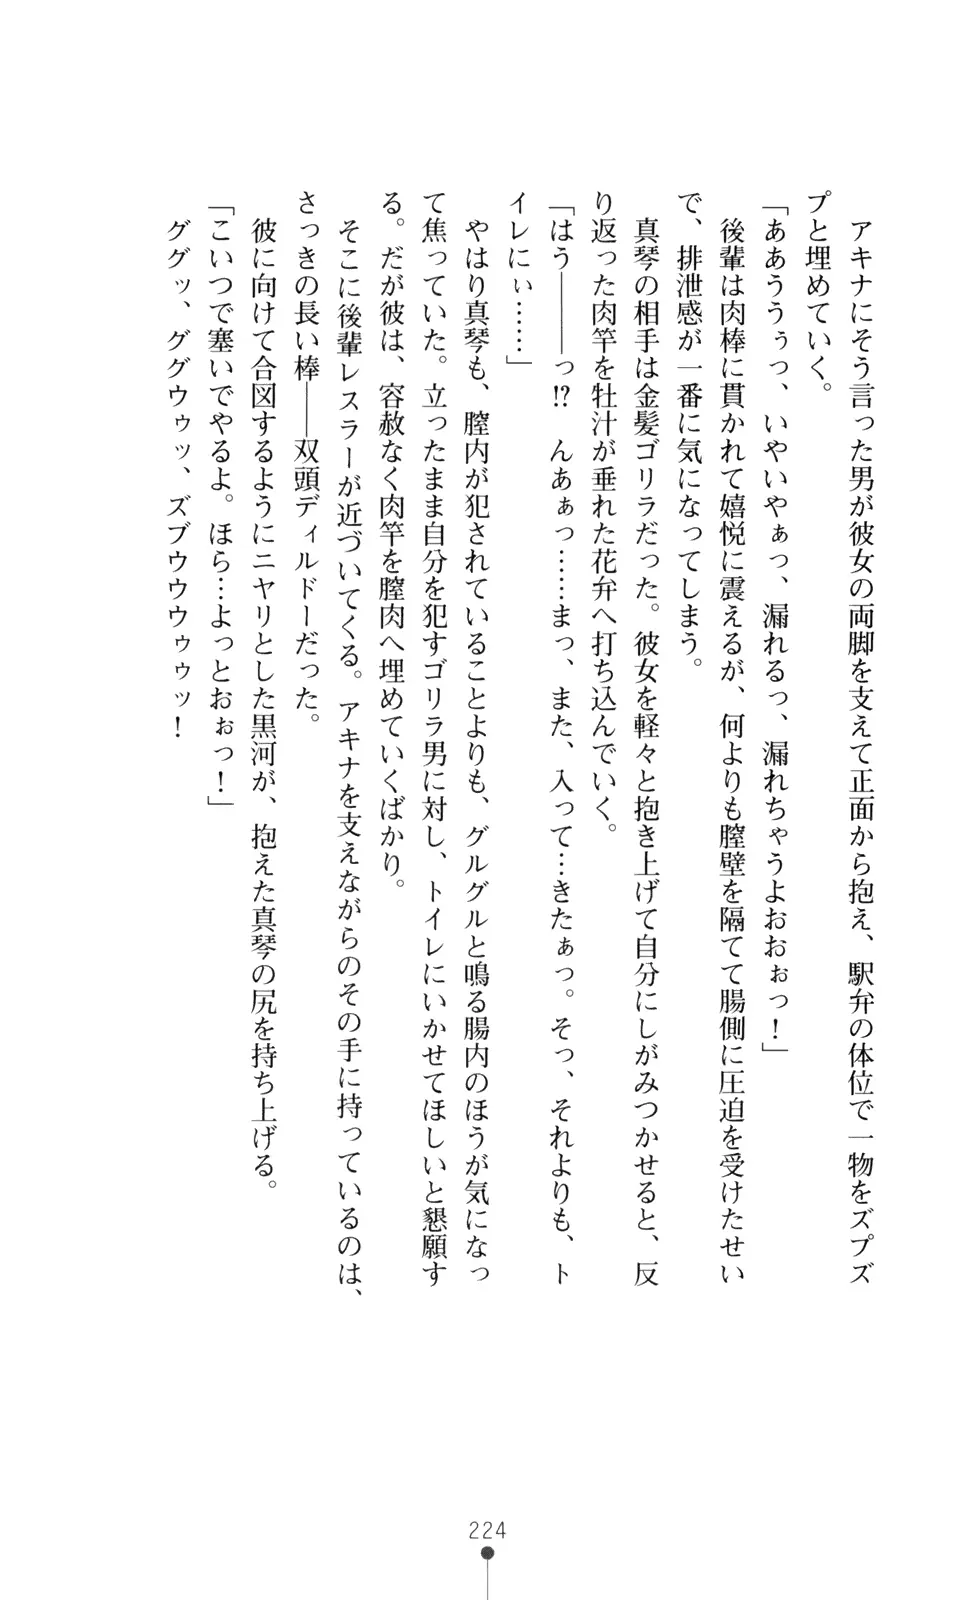 アキナにそう言った男が彼女の両脚を支えて正面から抱え、駅弁の体位で一物をズプズ
プと埋めていく。
「ああううぅっ、いやいやぁっ、漏れるっ、漏れちゃうよおおぉっ！」
後輩は肉棒に貫かれて嬉悦に震えるが、何よりも膣壁を隔てて腸側に圧迫を受けたせい
で、排泄感が一番に気になってしまう。
真琴の相手は金髪ゴリラだった。彼女を軽々と抱き上げて自分にしがみつかせると、反
り返った肉竿を牡汁が垂れた花弁へ打ち込んでいく。
「はう――――っ!?　んあぁっ……まっ、また、入って…きたぁっ。そっ、それよりも、ト
イレにぃ……」
やはり真琴も、膣内が犯されていることよりも、グルグルと鳴る腸内のほうが気になっ
て焦っていた。立ったまま自分を犯すゴリラ男に対し、トイレにいかせてほしいと懇願す
る。だが彼は、容赦なく肉竿を膣肉へ埋めていくばかり。
そこに後輩レスラーが近づいてくる。アキナを支えながらのその手に持っているのは、
さっきの長い棒――双頭ディルドーだった。
彼に向けて合図するようにニヤリとした黒河が、抱えた真琴の尻を持ち上げる。
「こいつで塞いでやるよ。ほら…よっとおぉっ！」
ググッ、ググウゥッ、ズブウウウゥゥッ！
224